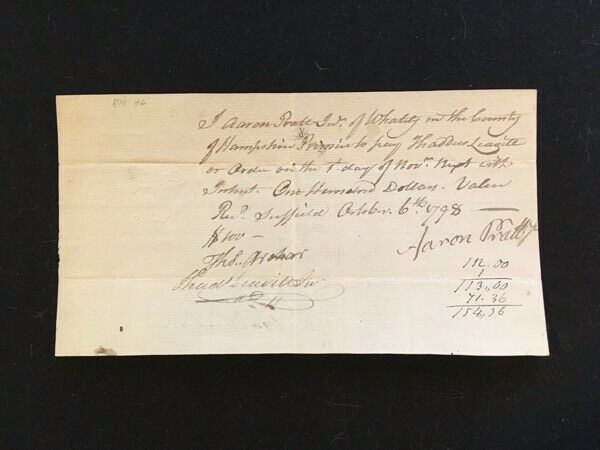 I Aaron Pratt Junr. of Whately in the County
of Hampshire Promise to pay Thaddeus Leavitt
or Order on the 1st day of Novr. Next with
Intrest. One Hundred Dollars. Value
Recd. Suffield October 6th. 1798
$100 —
Aaron Pratt Jr
Thad Leavitt Jur
112.00
1
113.00
41.36
154.36